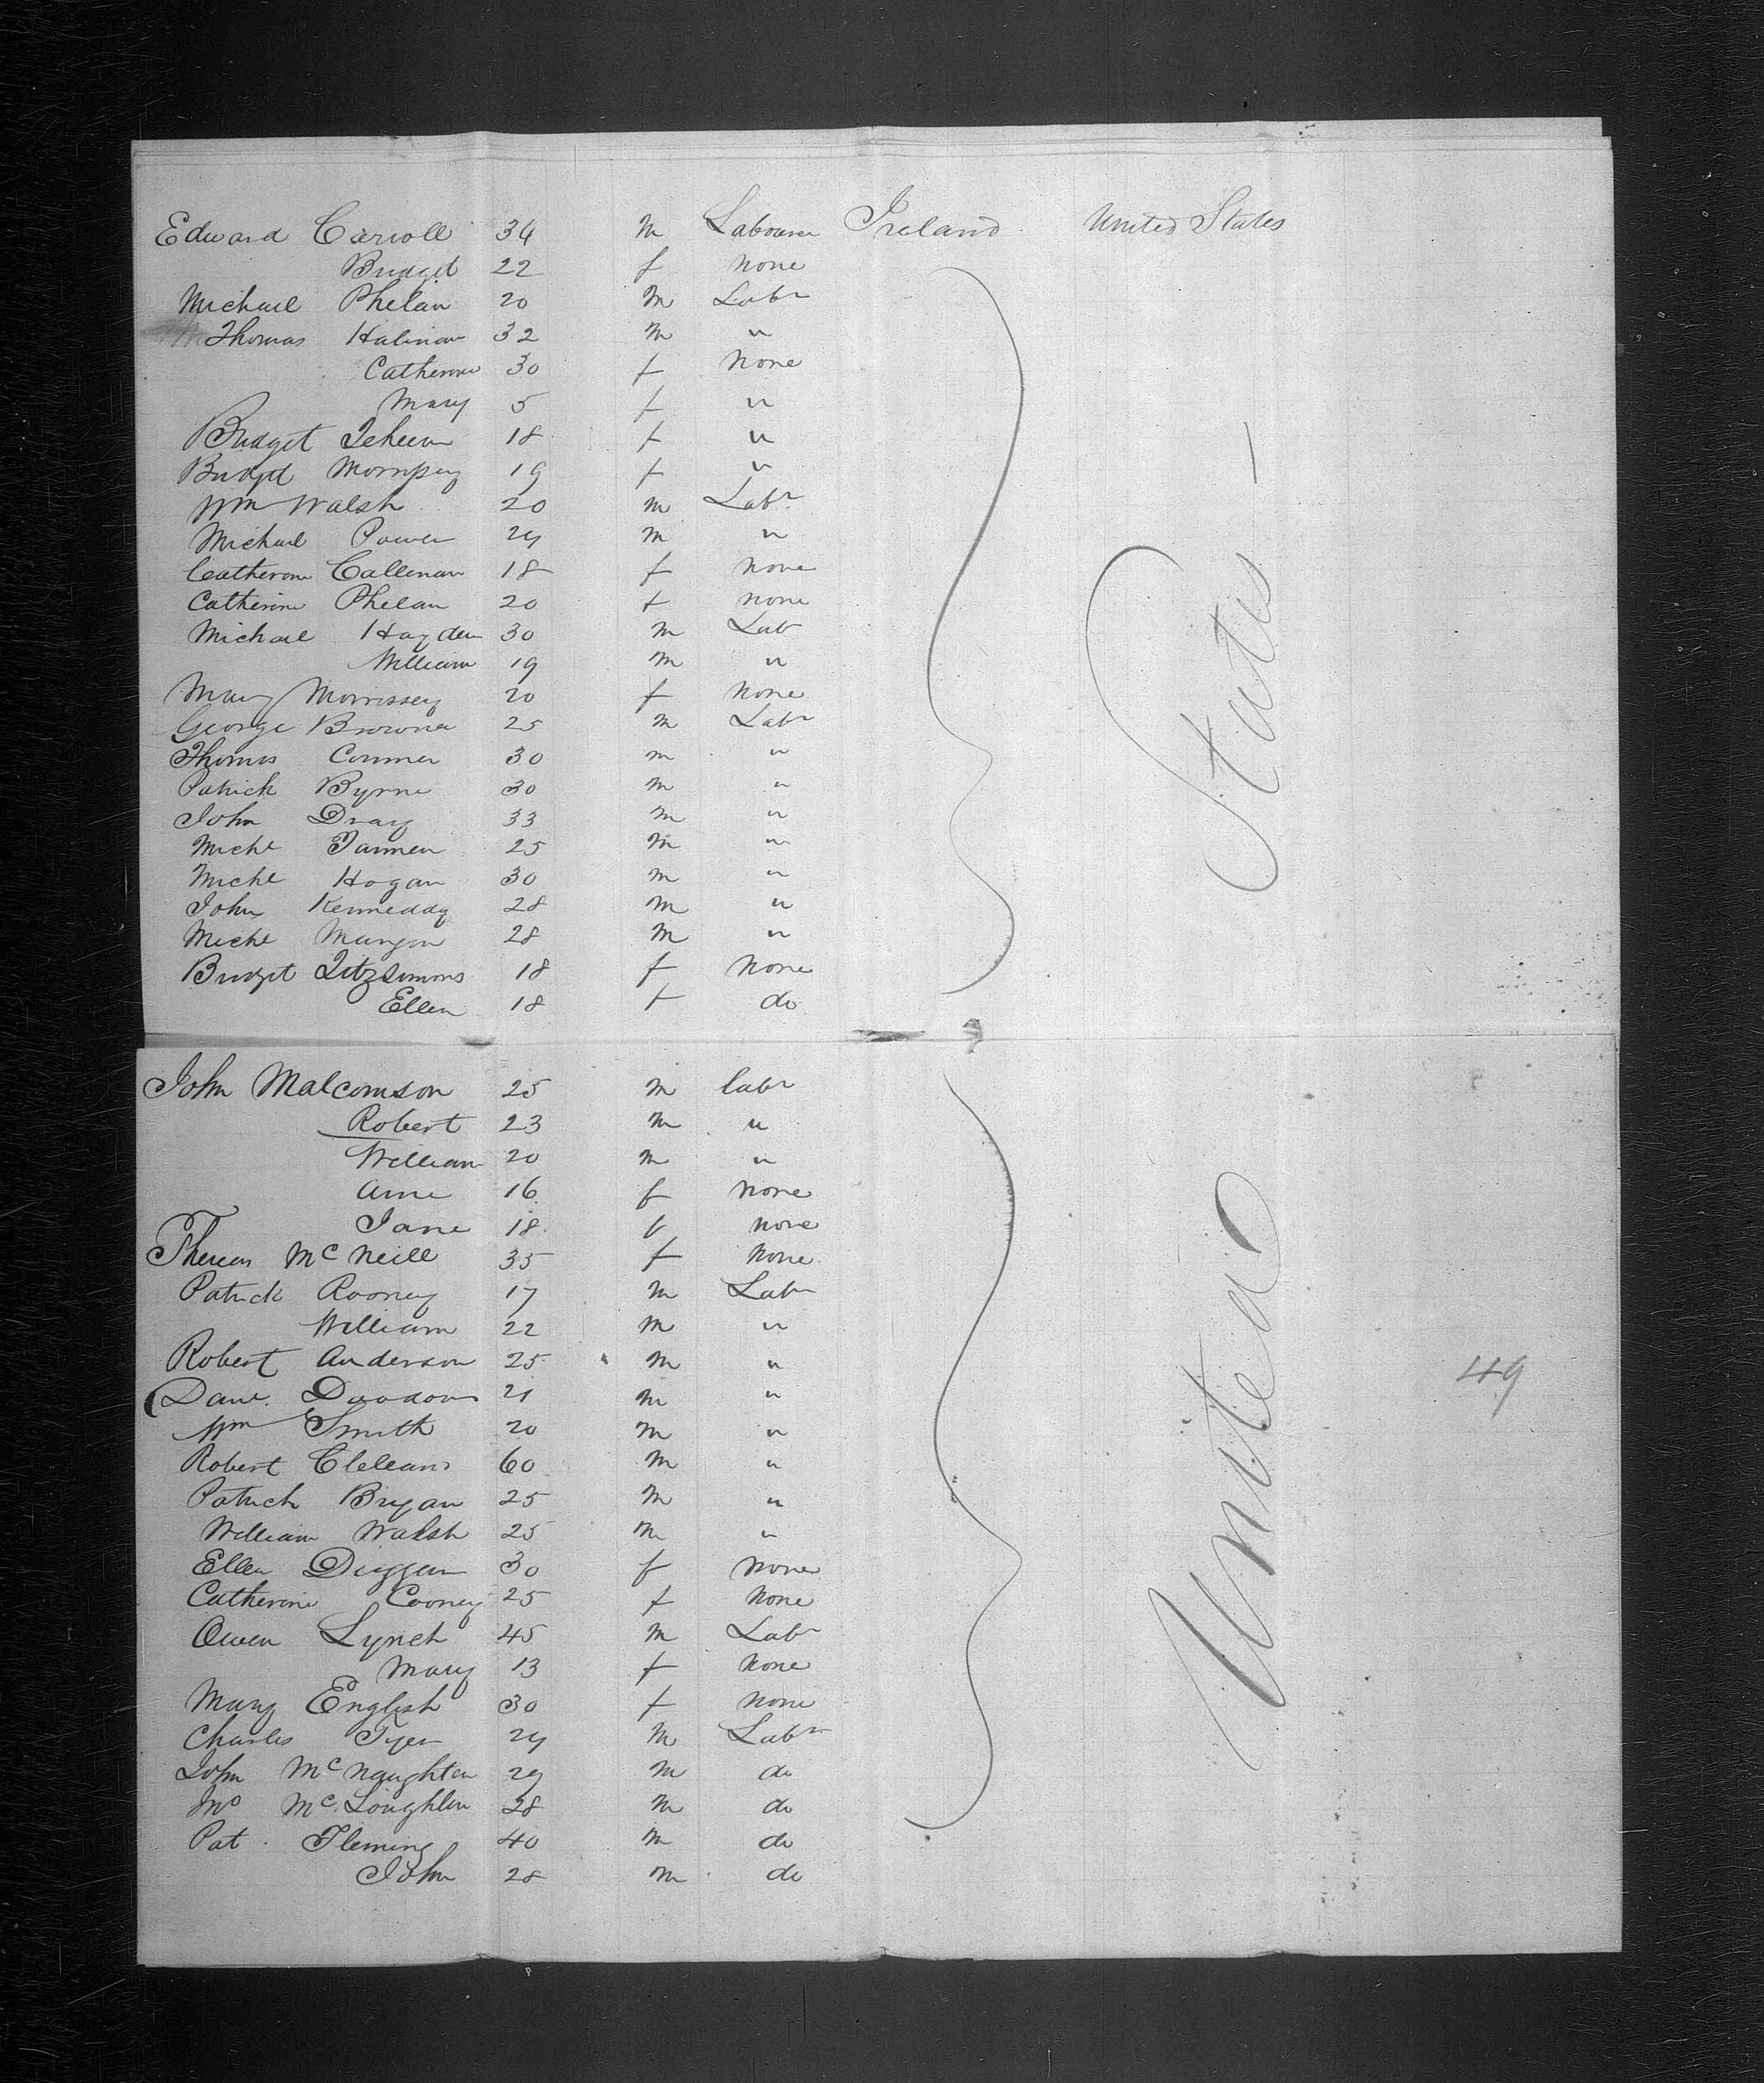 Edward Carroll 34 m Labourer Ireland United States
Bridget 22 f none
Michael Phelan 20 m Labr
Thomas Halinan 32 m "
Catherine 30 f none
Mary 5 f "
Bridget 18 f "
Bridget 19 f "
Wm Walsh 20 m Labr
Michael Power 24 m "
Catherine Callenan 18 f none
Catherine Phelan 20 f none
Michael Hayden 30 m Lab
William 19 m "
Mary Morrissey 20 f none
George Browne 25 m Labr
Thomas Connor 30 m "
Patrick Byrne 30 m "
John Dray 33 m "
Michl 25 m "
Michl Hogan 30 m "
John Kenneddy 28 m "
Michl Mangan 28 m "
Bridget Fitzsimmons 18 f none
Ellen 18 f do
John Malcomson 25 m labr
Robert 23 m "
William 20 m "
Anne 16 f none
Jane 18 f none
McNeill 35 f none
Patrick Rooney 17 m Labr
William 22 m "
Robert Anderson 25 m "
21 m "
Wm Smith 20 m "
Robert Cleland 60 m "
Patrick Bryan 25 m "
William Walsh 25 m "
Ellen Duggan 30 f none
Catherine Cooney 25 f none
Owen Lynch 45 m Labr
Mary 13 f none
Mary English 30 f none
Charles 24 m Labr
John McNaughten 29 m do
Jno McLoughlin 28 m do
Pat Fleming 40 m do
John 28 m do
United States –
49